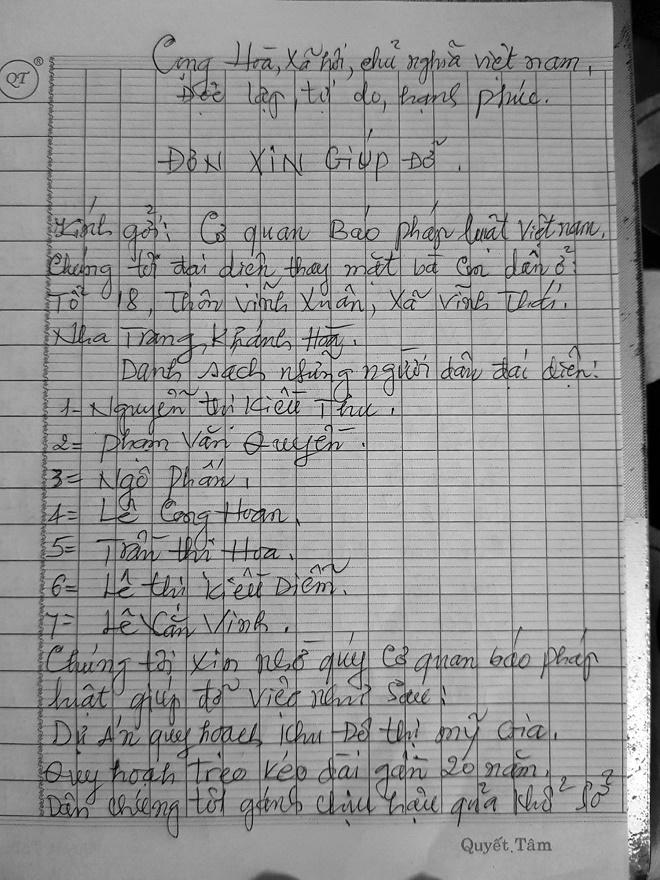 QT ®
Cộng Hoà, Xã hội, chủ nghĩa việt nam,
Độc lập, tự do, hạnh phúc.
ĐƠN XIN GIÚP ĐỠ.
Kính gởi: Cơ quan Báo pháp luật Việt nam.
Chúng tôi đại diện thay mặt bà con dân ở:
Tổ 18, thôn vĩnh Xuân, Xã vĩnh Thái.
Nha Trang, Khánh Hoà.
Danh sách những người dân đại diện:
1- Nguyễn thị Kiều Thu.
2= phạm Văn Quyền.
3= Ngô phấn,
4= Lê Công Hoan,
5= Trần thị Hoa.
6= Lê thị Kiều Diễm.
7= Lê Văn Vinh.
Chúng tôi xin nhờ quý cơ quan báo pháp
luật giúp đỡ việc như sau:
Dự Án quy hoạch khu Đô thị mỹ Gia.
Quy hoạch Treo kéo dài gần 20 năm,
Dân chúng tôi gánh chịu hậu quả khổ sở
Quyết Tâm